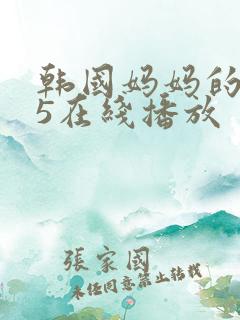 韩国妈妈的
5在线播放
張家國
未经同意禁止转载